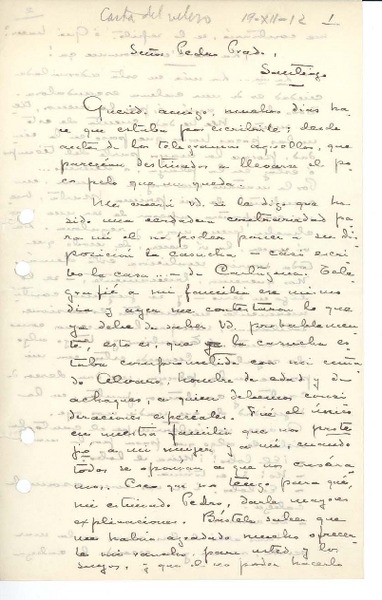 Carta del veloso 19-XII-12 1
Señor Pedro Prado,
Santiago
Querido amigo, muchos días ha-
ce que estaba por escribirle; desde
antes de los telegramas aquellos, que
parecían destinados a llevarse el po-
co pelo que me queda.
Me creerá Vd. si le digo que ha
sido una verdadera contrariedad pa-
ra mí el no poder poner a su dis-
posición la casucha – casi escri-
bo la casa... – de Cartagena. Tele-
grafié a mi familia ese mismo
día y ayer me contestaron lo que
ya debe de saber Vd. probablemen-
te, esto es, que ya la casucha es-
taba comprometida con mi cuña-
do Alvaro, hombre de edad y de
achaques, a quien debemos consi-
deraciones especiales. Fué el único
en nuestra familia que nos prote-
jió a mi mujer y a mí, cuando
todos se oponían a que nos casára-
mos. Creo que no tengo para qué,
mi estimado Pedro, darle mayores
explicaciones. Bástele saber que
me habría agradado mucho ofrecer-
le mi rancho, para usted y los
suyos, y que el no poder hacerlo